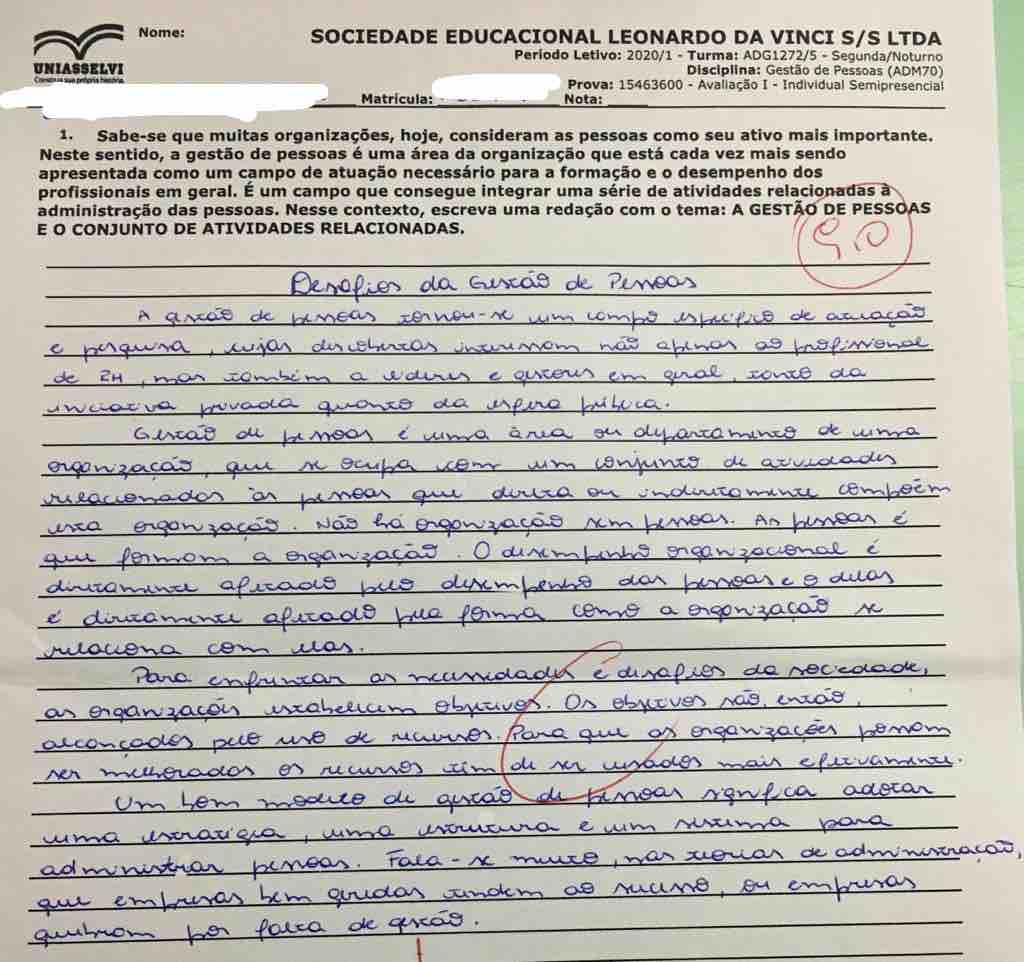 Nome:
SOCIEDADE EDUCACIONAL LEONARDO DA VINCI S/S LTDA
Período Letivo: 2020/1 - Turma: ADG1272/5 - Segunda/Noturno
Disciplina: Gestão de Pessoas (ADM70)
Prova: 15463600 - Avaliação I - Individual Semipresencial
UNIASSELVI
Construa sua própria história.
Matrícula: Nota:
1. Sabe-se que muitas organizações, hoje, consideram as pessoas como seu ativo mais importante.
Neste sentido, a gestão de pessoas é uma área da organização que está cada vez mais sendo
apresentada como um campo de atuação necessário para a formação e o desempenho dos
profissionais em geral. É um campo que consegue integrar uma série de atividades relacionadas à
administração das pessoas. Nesse contexto, escreva uma redação com o tema: A GESTÃO DE PESSOAS
E O CONJUNTO DE ATIVIDADES RELACIONADAS.
9,0
Desafios da Gestão de Pessoas
A gestão de pessoas tornou-se um campo específico de atuação
e pesquisa, cujas descobertas interessam não apenas ao profissional
de RH, mas também a líderes e gestores em geral, tanto da
iniciativa privada quanto da esfera pública.
Gestão de pessoas é uma área ou departamento de uma
organização, que se ocupa com um conjunto de atividades
relacionados às pessoas que direta ou indiretamente compõem
esta organização. Não há organização sem pessoas. As pessoas é
que formam a organização. O desempenho organizacional é
diretamente afetado pelo desempenho das pessoas e o delas
é diretamente afetado pela forma como a organização se
relaciona com elas.
Para enfrentar as necessidades e desafios da sociedade,
as organizações estabelecem objetivos. Os objetivos são, então,
alcançados pelo uso de recursos. Para que as organizações possam
ser melhorados os recursos têm de ser usados mais efetivamente.
Um bom modelo de gestão de pessoas significa adotar
uma estratégia, uma estrutura e um sistema para
administrar pessoas. Fala-se muito, nas teorias de administração,
que empresas bem geridas tendem ao sucesso, ou empresas
quebram por falta de gestão.